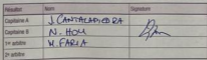 Résultat Nom Signature
Capitaine A J. CANTALAPIEDRA
Capitaine B N. HOM
1er arbitre M. FARIA
2e arbitre